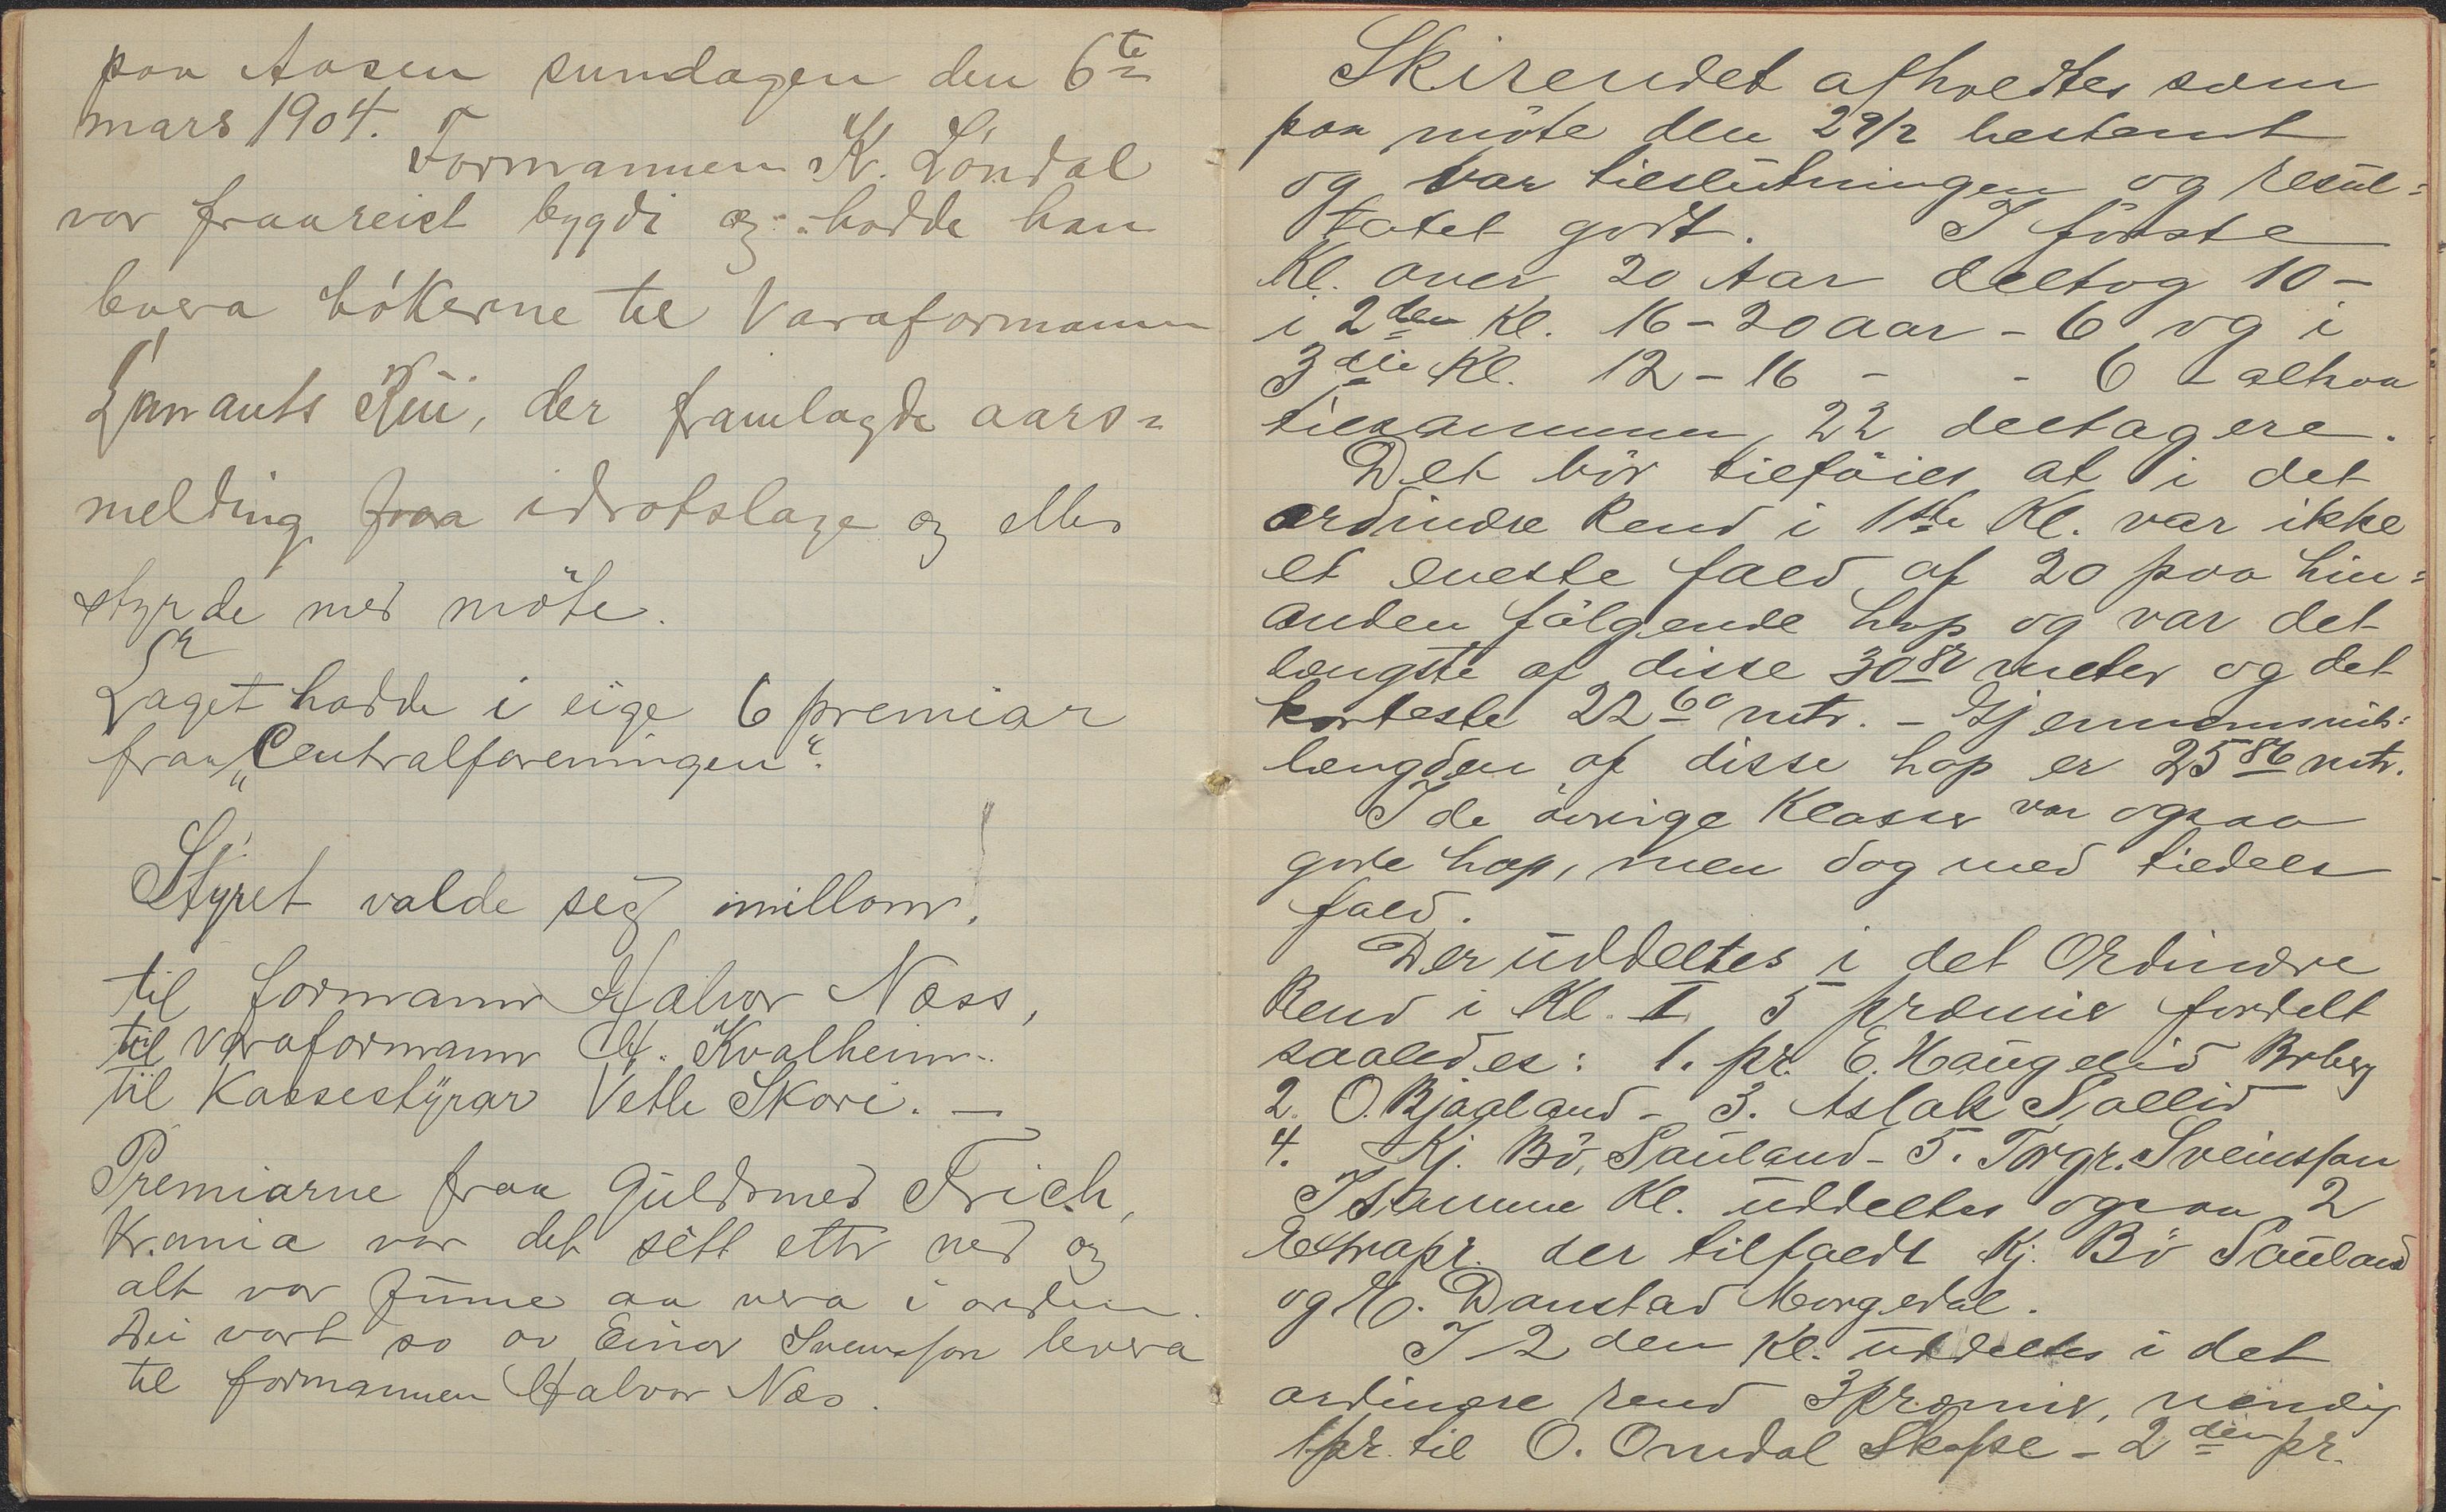 paa Aasen sundagen den 6te
mars 1904.
Formannen K. Løndal
var fraareist bygdi og hadde han
levera bókerne til Varaformann
Ljmants Rui, der framlagde aars=
melding fraa idrotslage og elles
styrde med möte.
Laget hadde i eige 6 premiar
fraa „Centralforeningen“.
Styret valde seg imillom!
til formann Halvor Næss,
til Varaformann H. Kvalheim.
til Kassestÿrar Vetle Skori. —
Premiarne fraa Guldsmed Frich,
Kr.ania var det sétt etter med og
alt var funne aa vera i orden.
Dei vart so av Einar Sveinsson levera
til formannen Halvor Næs.
Skirendet afholdtes som
paa möte den 29/2 bestemt
og var tilslutningen og resul=
tatet godt. I förste
Kl. over 20 Aar deltog 10 –
i 2den Kl. 16 – 20 aar – 6 og i
3die Kl. 12 – 16 – - 6 – altsaa
tilsammen 22 deltagere.
Det bör tilföies at i det
ordinære Rend i 1ste Kl. var ikke
et eneste fald af 20 paa hin=
anden fölgende hop og var det
længste af disse 30 82 meter og det
korteste 22 60 mtr. – Gjennomsnit=
længden af disse hop er 25 86 mtr.
I de övrige Klasser var ogsaa
gode hop, men dog med tildels
fald.
Der uddeltes i det Ordinære
Rend i Kl. I 5 præmier fordelt
saaledes: 1. pr. E. Haugelid Brbrg
2. O. Bjaaland – 3. Aslak Sallid
4. Kj. Bö, Sauland – 5. Torgr. Sveinsson
I samme Kl. uddeltes ogsaa 2
Extrapr. der tilfaldt Kj. Bö Sauland
og H. Danstad Morgedal.
I 2den Kl. uddeltes i det
ordinære rend 3 præmier, nemlig
1 pr. til O. Omdal Skafse – 2den pr.